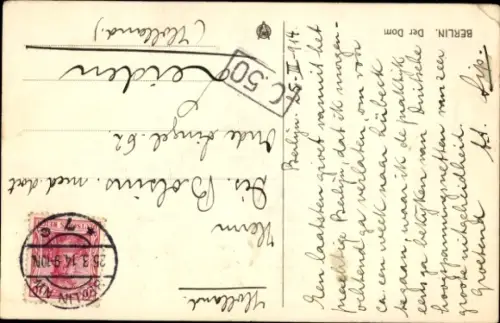 BERLIN. Der Dom
Berlijn. 25-III-1914.
Een laatsten groet vanuit het
prachtige Berlijn, dat ik morgen-
ochtend ga verlaten om voor
ca. een week naar Lübeck
te gaan, waar ik de praktijk
eens ga bekijken van Duitsche
hoogspanningsnetten van zeer
groote uitgebreidheid.
Groetend
Holland.
Herrn
Jis. Bolsius. med. doct
Oude Singel. 62.
Leiden
(Holland.)
f C. 50
BERLIN NW
25.3.14.9-10N.
* 7 c